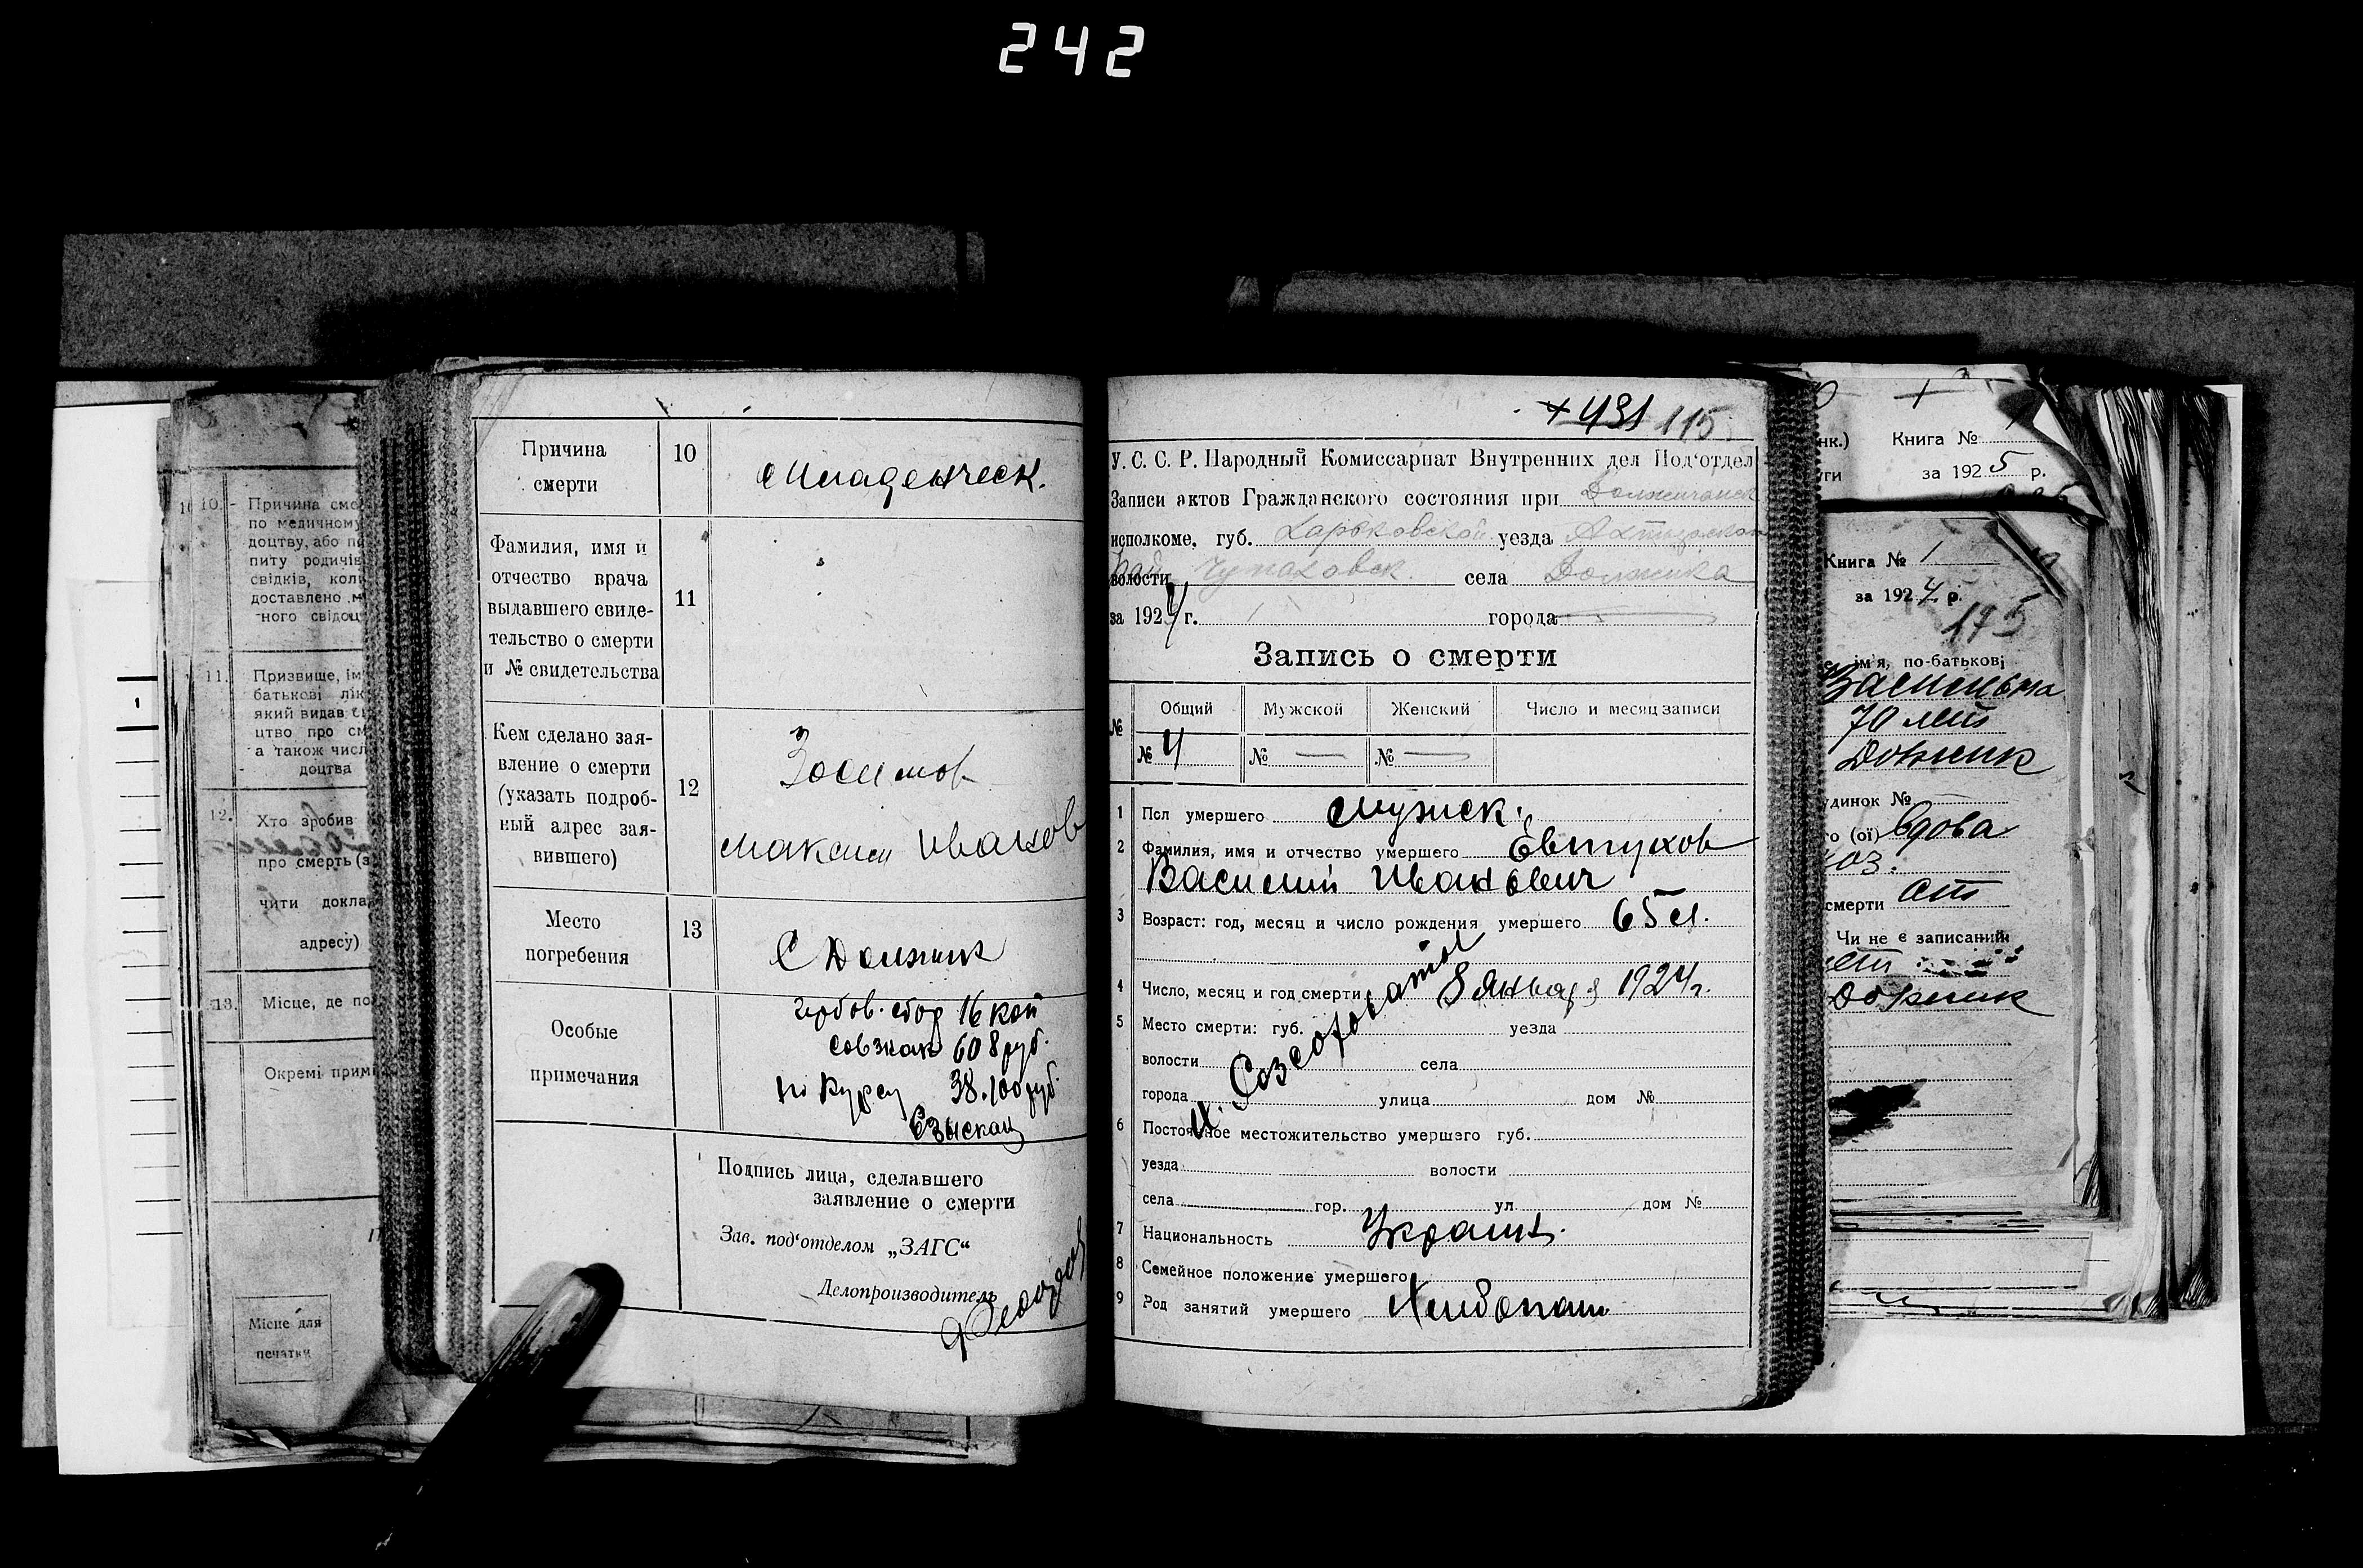 242
Причина смерти
10
Младенческ.
Фамилия, имя и отчество врача выдавшего свидетельство о смерти и № свидетельства
11
Кем сделано заявление о смерти (указать подробный адрес заявившего)
12
Зосимов
Максим Иванов
Место погребения
13
С Должик
Особые примечания
гербов. сбор 16 коп
совзнак 608 руб.
по курсу 38.100 руб.
Взыскан
Подпись лица, сделавшего
заявление о смерти
Зав. под‘отделом „ЗАГС“
Делопроизводитель
+ 431 115
У. С. С. Р. Народный Комиссариат Внутренних дел Под‘отдел
Записи актов Гражданского состояния при
исполкоме. губ. Харьковской уезда
волости села Должика
за 1924 г. города
Запись о смерти
№ Общий Мужской Женский Число и месяц записи
№ 4 № — № —
1 Пол умершего Мужск.
2 Фамилия, имя и отчество умершего Евтухов
Василий Иванович
3 Возраст: год, месяц и число рождения умершего 65 л.
4 Число, месяц и год смерти 8 Января 1924 г.
5 Место смерти: губ. уезда
волости села
города улица дом №
6 Постоянное местожительство умершего губ.
уезда волости
села гор. ул. дом №
7 Национальность Украин.
8 Семейное положение умершего
9 Род занятий умершего Хлебопаш.
10. Причина
по медичному
доцтву, або
питу родичів
свідків,
доставлено
11.
батькові
який видав
цтво про
а також
доцтва
12. Хто зробив
про смерть
чити
адресу)
13. Місце, де
Окремі
Місце для
печатки
Книга №
за 1925 р.
Книга № 1
за 1924 р.
175
ім'я, по-батькові
70 лет
Должик
№
(ої) вдова
смерти от
Чи не є записаний
Должик